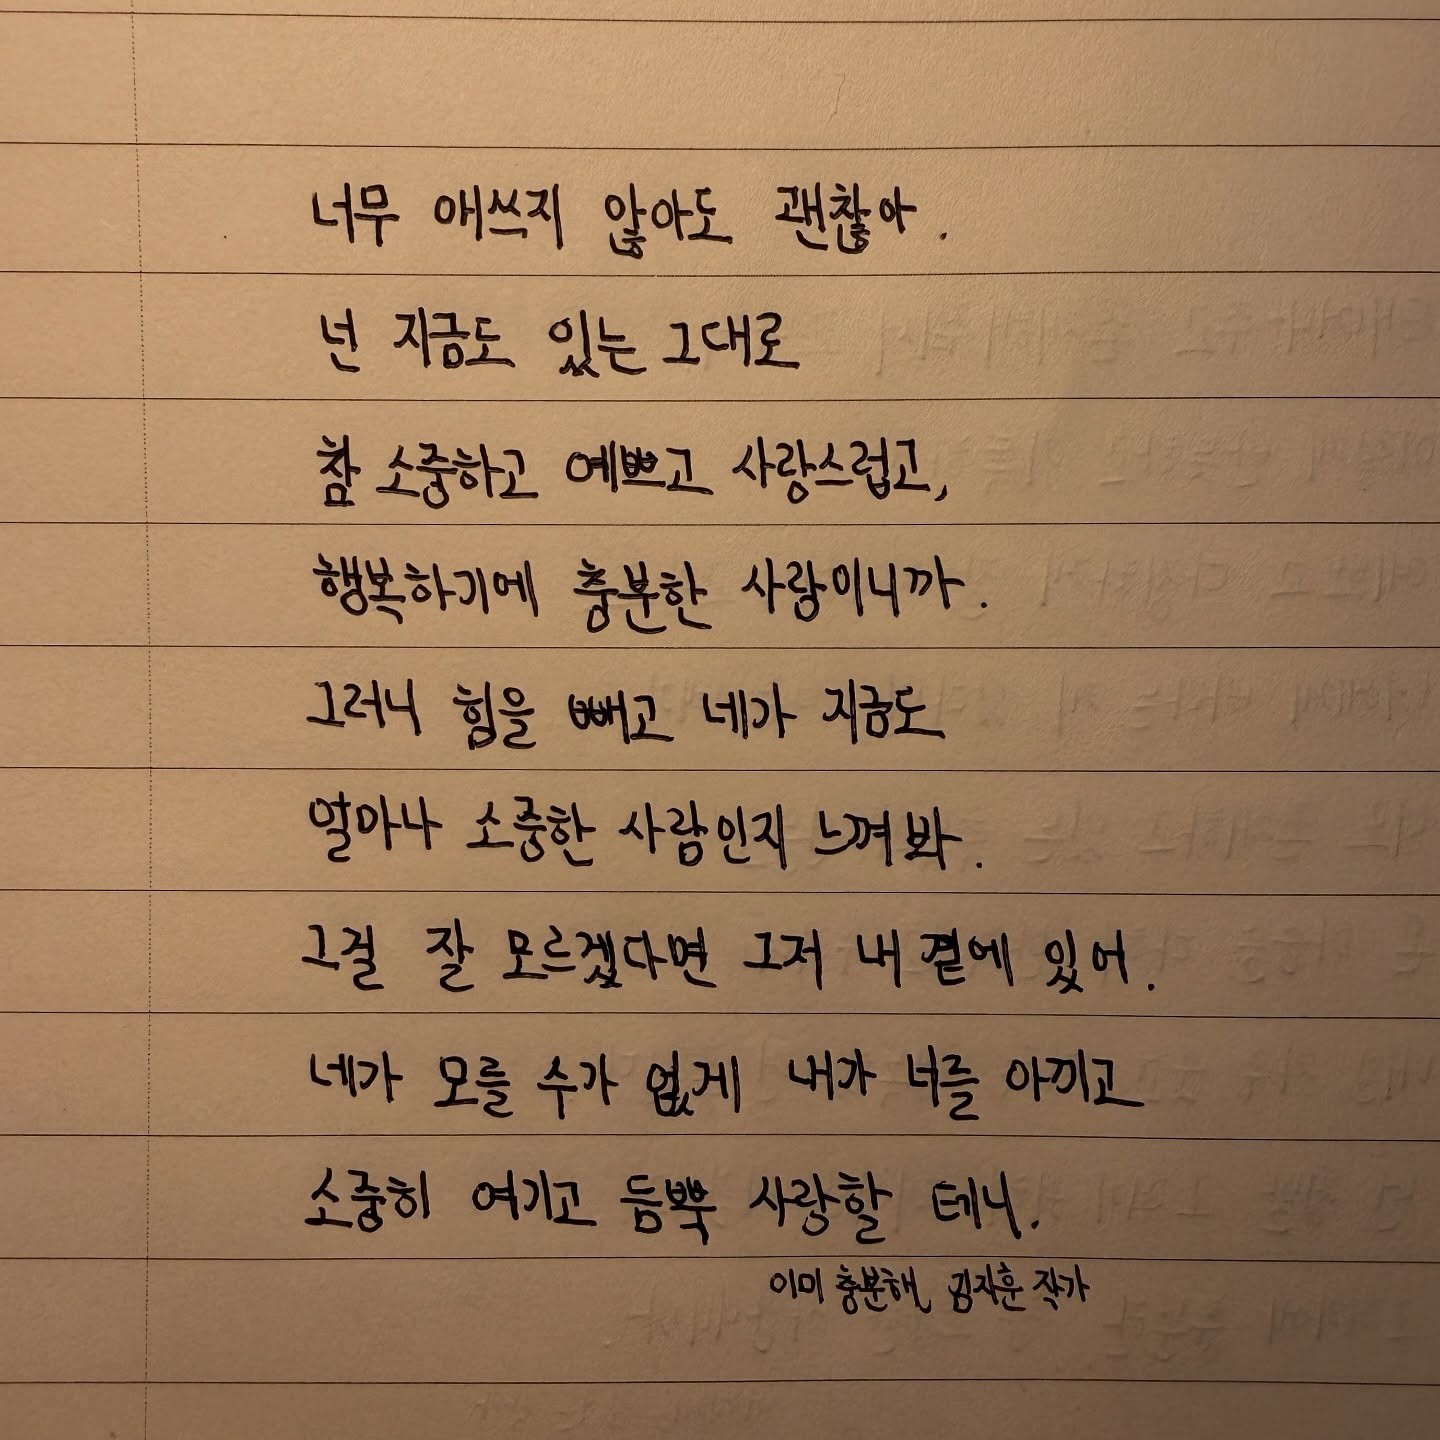 너무 애쓰지 않아도 괜찮아.
넌 지금도 있는 그대로
참 소중하고 예쁘고 사랑스럽고,
행복하기에 충분한 사랑이니까.
그러니 힘을 빼고 네가 지금도
얼마나 소중한 사람인지 느껴봐.
그걸 잘 모르겠다면 그저 내 곁에 있어.
네가 모를 수가 없게 내가 너를 아끼고
소중히 여기고 듬뿍 사랑할 테니.
이미 충분해, 김지훈 작가